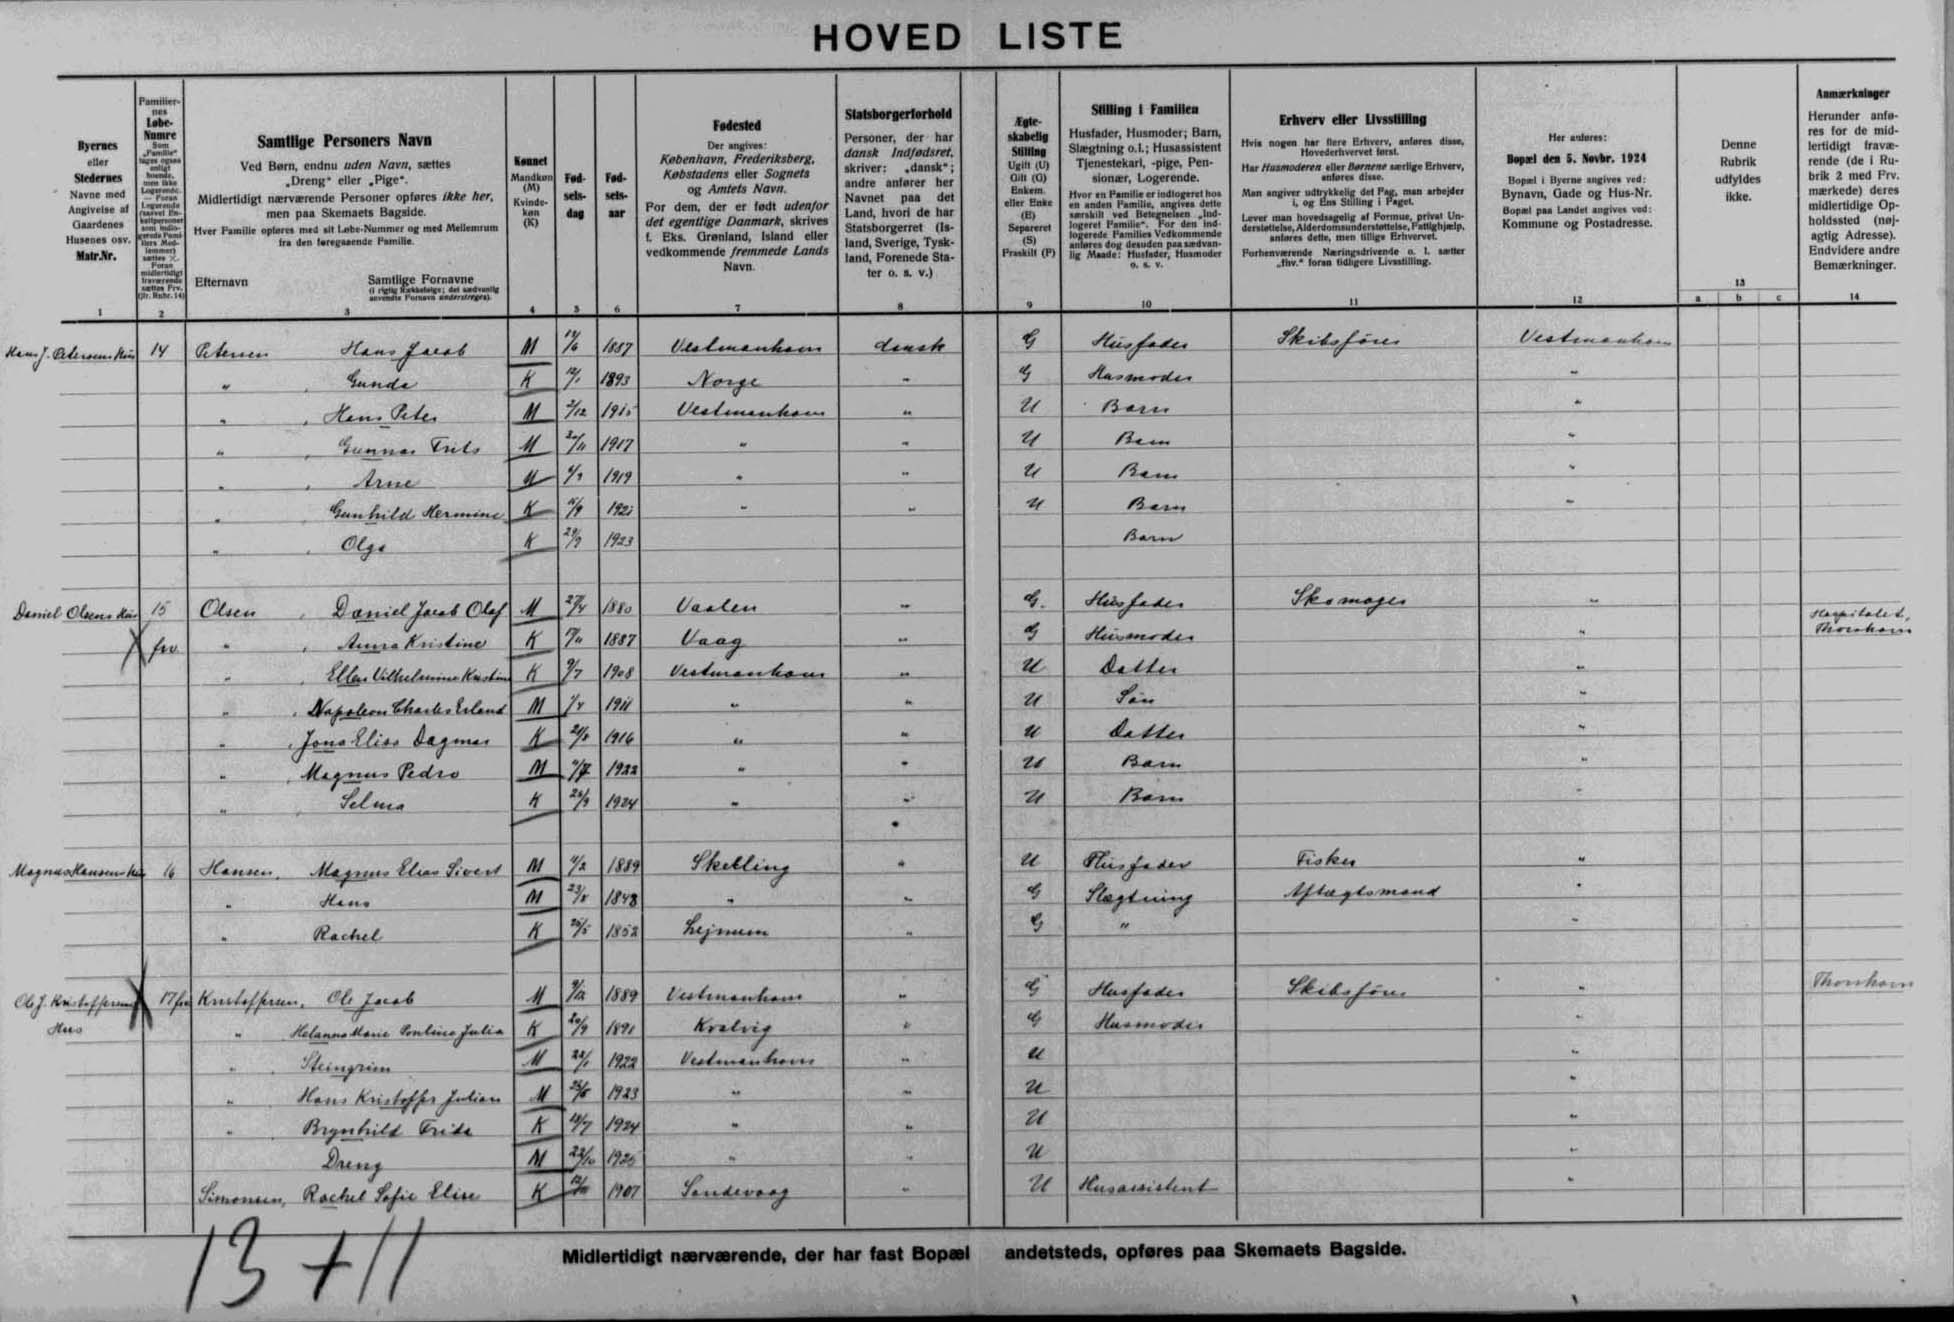 HOVED LISTE
Byernes
eller
Stedernes
Navne med
Angivelse af
Gaardenes
Husenes osv.
Matr.Nr.
1
Familier-
nes
Løbe-
Numre
Som
„Familie"
tages ogsaa
enligt
boende,
men ikke
Logerende.
— Foran
Logerende
2
Samtlige Personers Navn
Ved Børn, endnu uden Navn, sættes
„Dreng" eller „Pige".
Midlertidigt nærværende Personer opføres ikke her,
men paa Skemaets Bagside.
Hver Familie opføres med sit Løbe-Nummer og med Mellemrum
fra den foregaaende Familie.
Efternavn Samtlige Fornavne
(i rigtig Rækkefølge; det sædvanlig
anvendte Fornavn understreges).
3
Kønnet
Mandkøn
(M)
Kvinde-
køn
(K)
4
Fød-
sels-
dag
5
Fød-
sels-
aar
6
Fødested
Der angives:
København, Frederiksberg,
Købstadens eller Sognets
og Amtets Navn.
For dem, der er født udenfor
det egentlige Danmark, skrives
f. Eks. Grønland, Island eller
vedkommende fremmede Lands
Navn.
7
Statsborgerforhold
Personer, der har
dansk Indfødsret,
skriver: „dansk";
andre anfører her
Navnet paa det
Land, hvori de har
Statsborgerret (Is-
land, Sverige, Tysk-
land, Forenede Sta-
ter o. s. v.)
8
Ægte-
skabelig
Stilling
Ugift (U)
Gift (G)
Enkem.
eller Enke
(E)
Separeret
(S)
Fraskilt (F)
9
Stilling i Familien
Husfader, Husmoder; Barn,
Slægtning o.l.; Husassistent
Tjenestekari, -pige, Pen-
sionær, Logerende.
Hvor en Familie er indlogeret hos
en anden Familie, angives dette
særskilt ved Betegnelsen „Ind-
logeret Familie". For den ind-
logerede Families Vedkommende
anføres dog desuden paa sædvan-
lig Maade: Husfader, Husmoder
o. s. v.
10
Erhverv eller Livsstilling
Hvis nogen har flere Erhverv, anføres disse,
Hovederhvervet først.
Har Husmoderen eller Børnene særlige Erhverv,
anføres disse.
Man angiver udtrykkelig det Fag, man arbejder
i, og Ens Stilling i Faget.
Lever man hovedsagelig af Formue, privat Un-
derstøttelse, Alderdomsunderstøttelse, Fattighjælp,
anføres dette, men tillige Erhvervet.
Forhenværende Næringsdrivende o. l. sætter
„fhv." foran tidligere Livsstilling.
11
Her anføres:
Bopæl den 5. Novbr. 1924
Bopæl i Byerne angives ved:
Bynavn, Gade og Hus-Nr.
Bopæl paa Landet angives ved:
Kommune og Postadresse.
12
Denne
Rubrik
udfyldes
ikke.
13
a b c
Anmærkninger
Herunder anfø-
res for de mid-
lertidigt fravæ-
rende (de i Ru-
brik 2 med Frv.
mærkede) deres
midlertidige Op-
holdssted (nøj-
agtig Adresse).
Endvidere andre
Bemærkninger.
14
Hans J. Petersens Hus 14 Petersen Hans Jacob M 1887 Vestmanhavn dansk G Husfader Skibsfører Vestmanhavn
" Gunda K 1893 Norge " G Husmoder "
" Hans Peter M 2/12 1915 Vestmanhavn " U Barn "
" Gunnar Frits M 1917 " " U Barn "
" Arne M 1919 " " U Barn "
" Gunhild Hermine K 1921 " " U Barn "
" Olga K 1923 Barn
Daniel Olsens Hus 15 Olsen Daniel Jacob Olaf M 27/4 1880 Vaalen " G. Husfader Skomager " Hospitalet,
Thorshavn
frv " Anna Kristine K 1887 Vaag " G Husmoder "
" Ellen Vilhelmine Kristine K 9/7 1908 Vestmanhavn " U Datter "
" Napoleon Charles Erland M 1911 " " U Søn "
" Jona Elisa Dagmar K 1916 " " U Datter "
" Magnus Pedro M 1922 " " U Barn "
" Selma K 1924 " " U Barn "
Magnus Hansens Hus 16 Hansen, Magnus Elias Sivert M 1889 Skelling " U Husfader Fisker "
" Hans M 1848 " " G Slægtning Aftægtsmand "
" Rachel K 1852 Lejnum " G " "
Ole J. Kristoffersens 17 frv Kristoffersen, Ole Jacob M 1889 Vestmanhavn " G Husfader Skibsfører " Thorshavn
Hus " Helanna Marie Pouline Julia K 1891 Kvalvig " G Husmoder "
" Steingrim M 1922 Vestmanhavn " U "
" Hans Kristoffer Julian M 1923 " " U "
" Brynhild Frida K 1924 " " U "
Dreng M 22/10 1925 " " U "
Simonsen, Rachel Sofie Elise K 1907 Sandevaag " U Husassistent "
13 + 11
Midlertidigt nærværende, der har fast Bopæl andetsteds, opføres paa Skemaets Bagside.